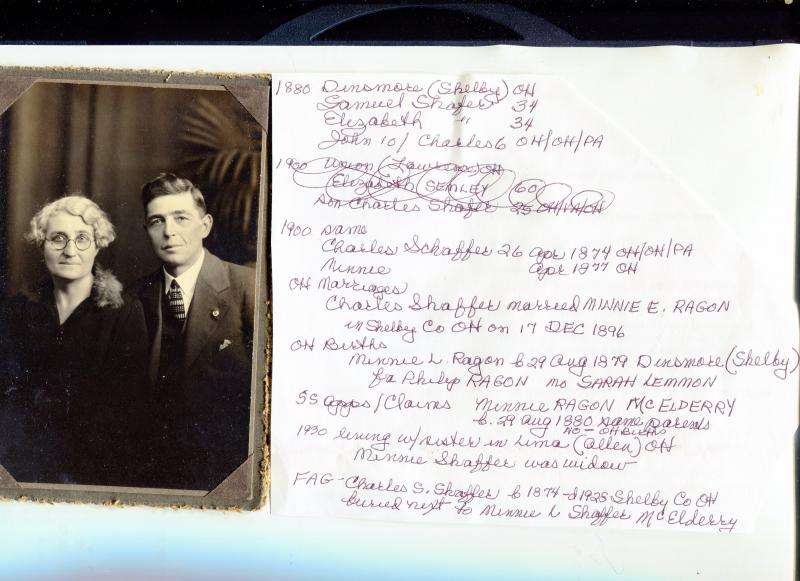 1880 Dinsmore (Shelby) OH
Samuel Shafer 34
Elizabeth " 34
John 10/ Charles 6 OH/OH/PA
1900 Union (Lawrence) OH
Elizabeth SEMLEY 60
son Charles Shafer 25 OH/PA/OH
1900 same
Charles Schaffer 26 Apr 1874 OH/OH/PA
Minnie Apr 1877 OH
OH Marriages
Charles Shaffer married MINNIE E. RAGON
in Shelby Co OH on 17 DEC 1896
OH Births
Minnie L. Ragon b 29 Aug 1879 Dinsmore (Shelby)
fa Philip RAGON mo SARAH LEMMON
SS Apps/Claims Minnie RAGON McELDERRY
b. 29 Aug 1880 same parents
NO - OH Births
1930 living w/sister in Lima (Allen) OH
Minnie Shaffer was widow
FAG - Charles S. Shaffer b 1874-d 1928 Shelby Co OH
buried next to Minnie L Shaffer McElderry